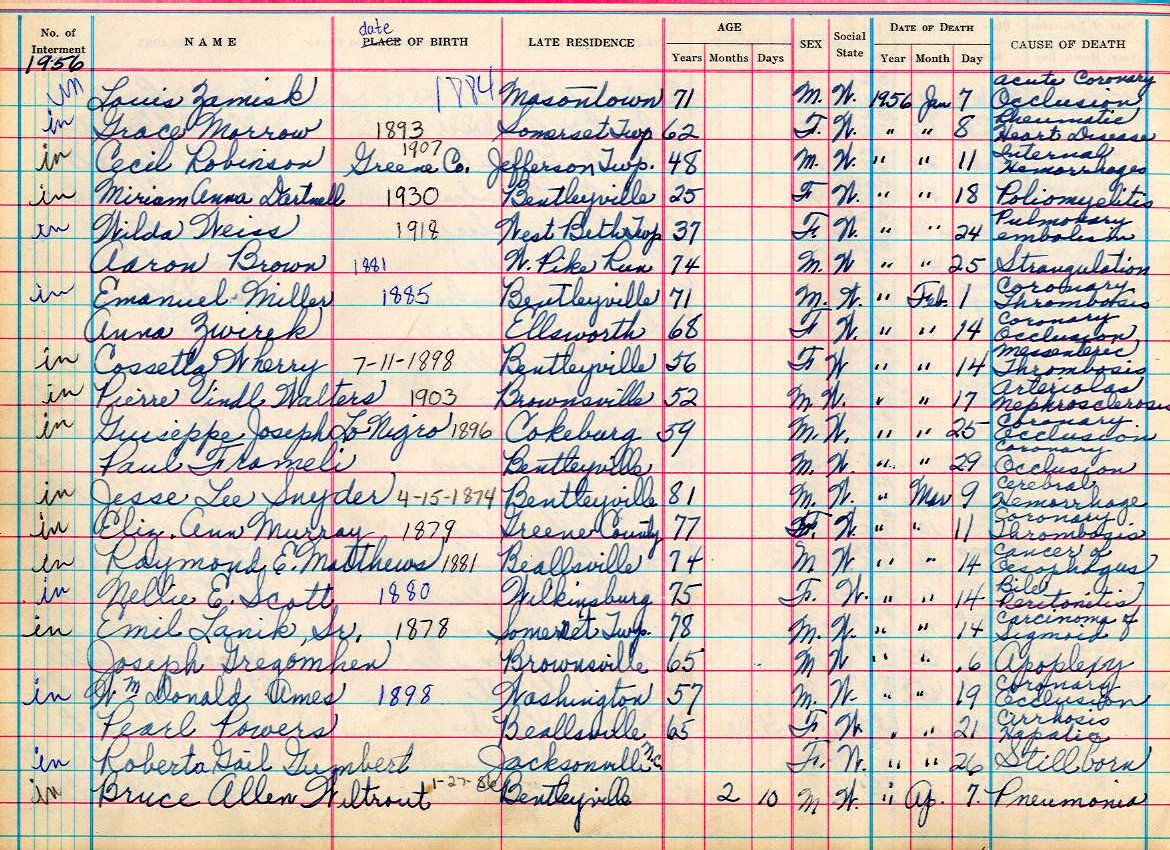 No. of Interment NAME date PLACE OF BIRTH LATE RESIDENCE AGE Years Months Days SEX Social State DATE OF DEATH Year Month Day CAUSE OF DEATH
1956
in Louis Zamisk 1884 Masontown 71 M. W. 1956 Jan 7 Acute Coronary Occlusion
in Grace Morrow 1893 Somerset Twp 62 F. W. " " 8 Rheumatic Heart Disease
in Cecil Robinson 1907 Greene Co. Jefferson Twp. 48 M. W. " " 11 Internal Hemorrhages
in Miriam Anna Dartnell 1930 Bentleyville 25 F W. " " 18 Poliomyelitis
in Wilda Weiss 1918 West Beth Twp 37 F. W. " " 24 Pulmonary embolism
Aaron Brown 1881 W. Pike Run 74 M. W " " 25 Strangulation
in Emanuel Miller 1885 Bentleyville 71 M. W. " Feb. 1 Coronary Thrombosis
Anna Zwirek Ellsworth 68 F W. " " 14 Coronary Occlusion
in Cossetta Wherry 7-11-1898 Bentleyville 56 F W " " 14 Thrombosis
in Pierre Vindl Walters 1903 Brownsville 52 M. W. " " 17 nephrosclerosis
in Guiseppe Joseph LoNigro 1896 Cokeburg 59 M. W. " " 25 Coronary Occlusion
Paul Trameli Bentleyville M. W. " " 29 Coronary Occlusion
in Jesse Lee Snyder 4-15-1874 Bentleyville 81 M. W. " Mar 9 Cerebral Hemorrhage
in Eliz. Ann Murray 1879 Greene County 77 F. W. " " 11 Coronary Thrombosis
in Raymond E. Matthews 1881 Beallsville 74 M W. " " 14 Cancer of Oesophagus
in Nellie E. Scott 1880 Wilkinsburg 75 F. W. " " 14 Bile Peritonitis
in Emil Lanik, Sr. 1878 Somerset Twp. 78 M. W. " " 14 Carcinoma of Sigmoid
Joseph Gregomhen Brownsville 65 M W " " 6 Apoplexy
in Wm Donald Ames 1898 Washington 57 M. W. " " 19 Coronary Occlusion
Pearl Powers Beallsville 65 F W. " " 21 Cirrhosis Hepatic
in Roberta Gail Gumbert Jacksonville N.C. F. W. " " 26 Stillborn
in Bruce Allen Wiltrout 1-27-56 Bentleyville 2 10 M W. " Ap. 7. Pneumonia